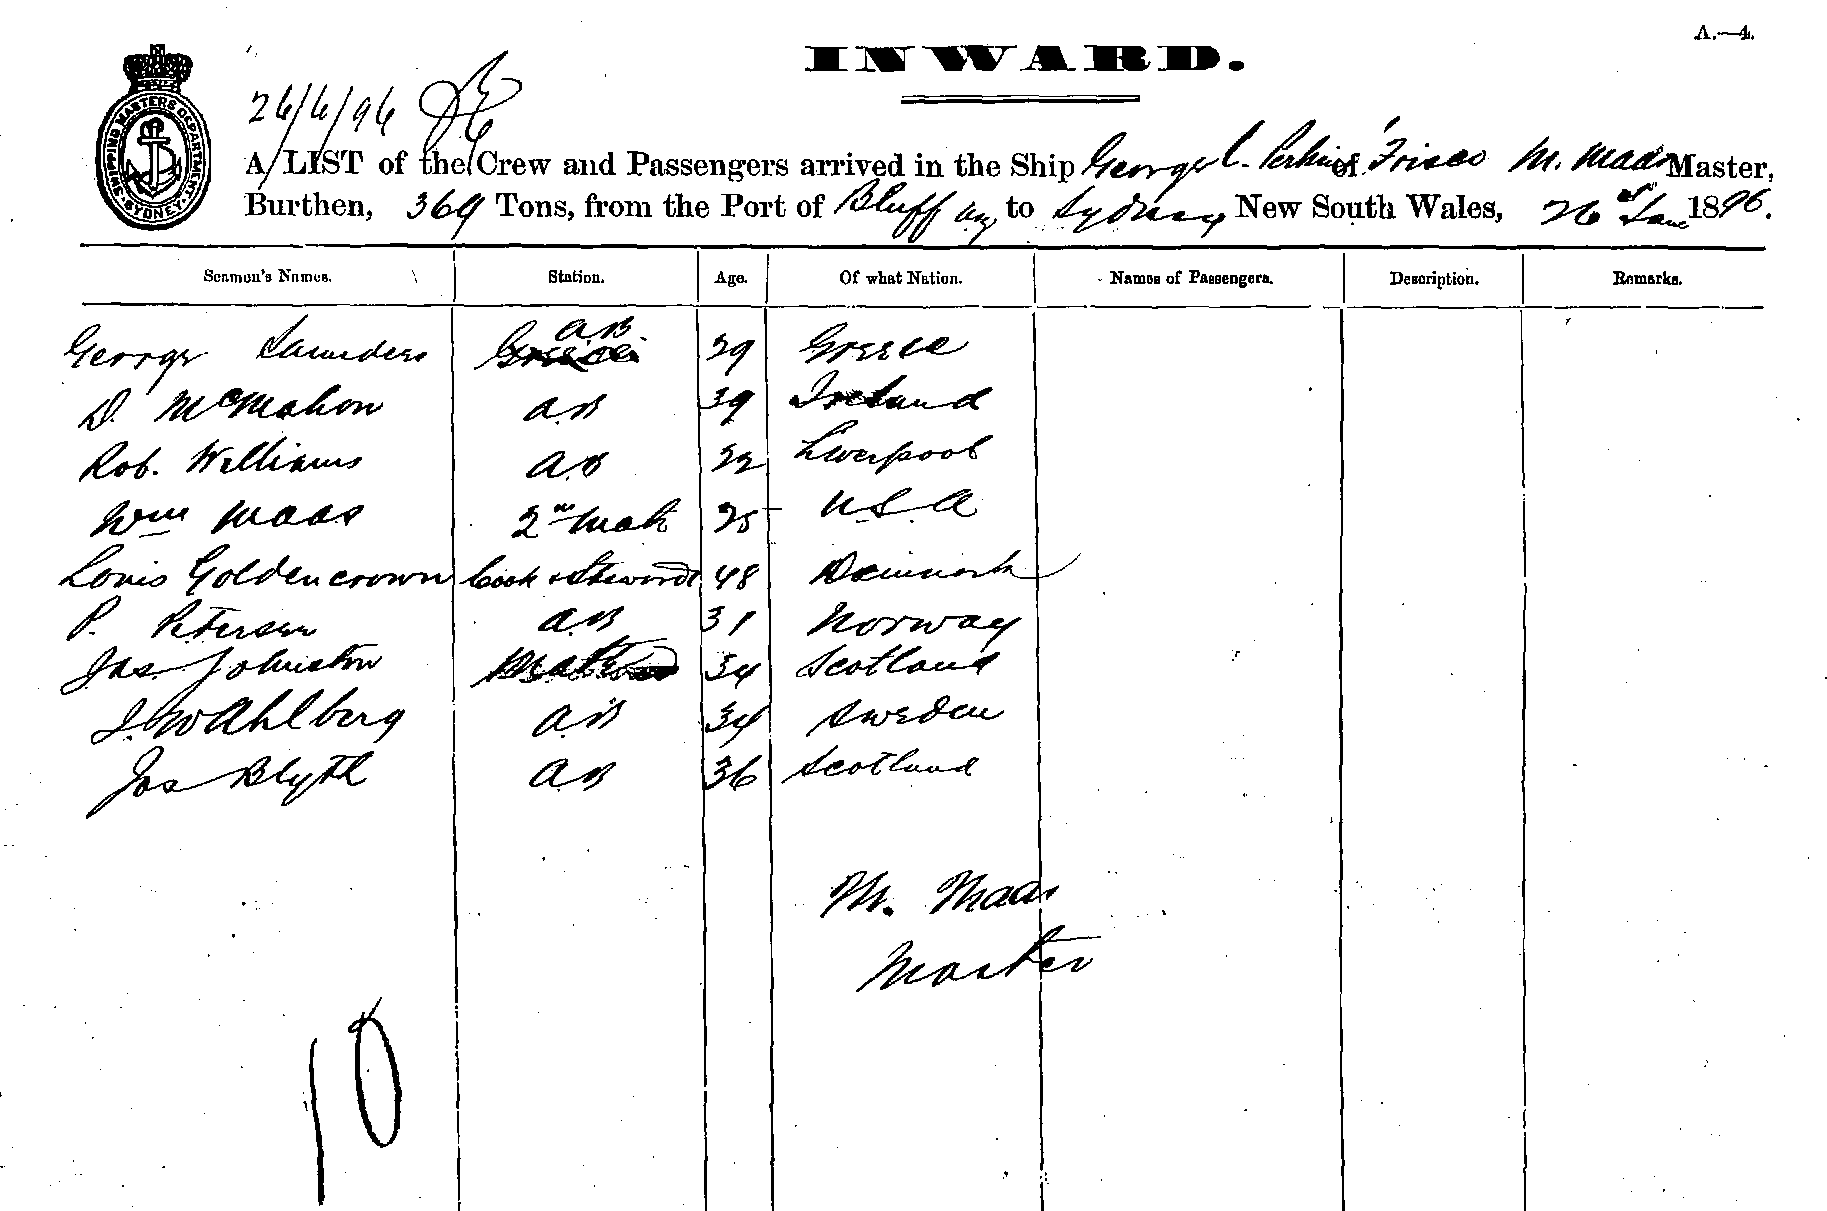 A.—4.
INWARD.
26/6/96
SHIPPING MASTERS DEPARTMENT SYDNEY
A LIST of the Crew and Passengers arrived in the Ship George C. Perkins of 'Frisco M. Maas Master,
Burthen, 369 Tons, from the Port of Bluff to Sydney New South Wales, 26 1896.
Seamen's Names. Station. Age. Of what Nation. Names of Passengers. Description. Remarks.
George Saunders A.B 29 Greece
D. McMahon A.B 39 Ireland
Rob. Williams A.B 22 Liverpool
Wm Maas 2nd Mate 25 U.S.A
Louis Goldencrown Cook & Steward 48 Denmark
P. Petersen A.B 31 Norway
Jas. Johnston Mate 34 Scotland
J. Wahlberg A.B 34 Sweden
Jas Blyth A.B 36 Scotland
M. Maas
Master
10